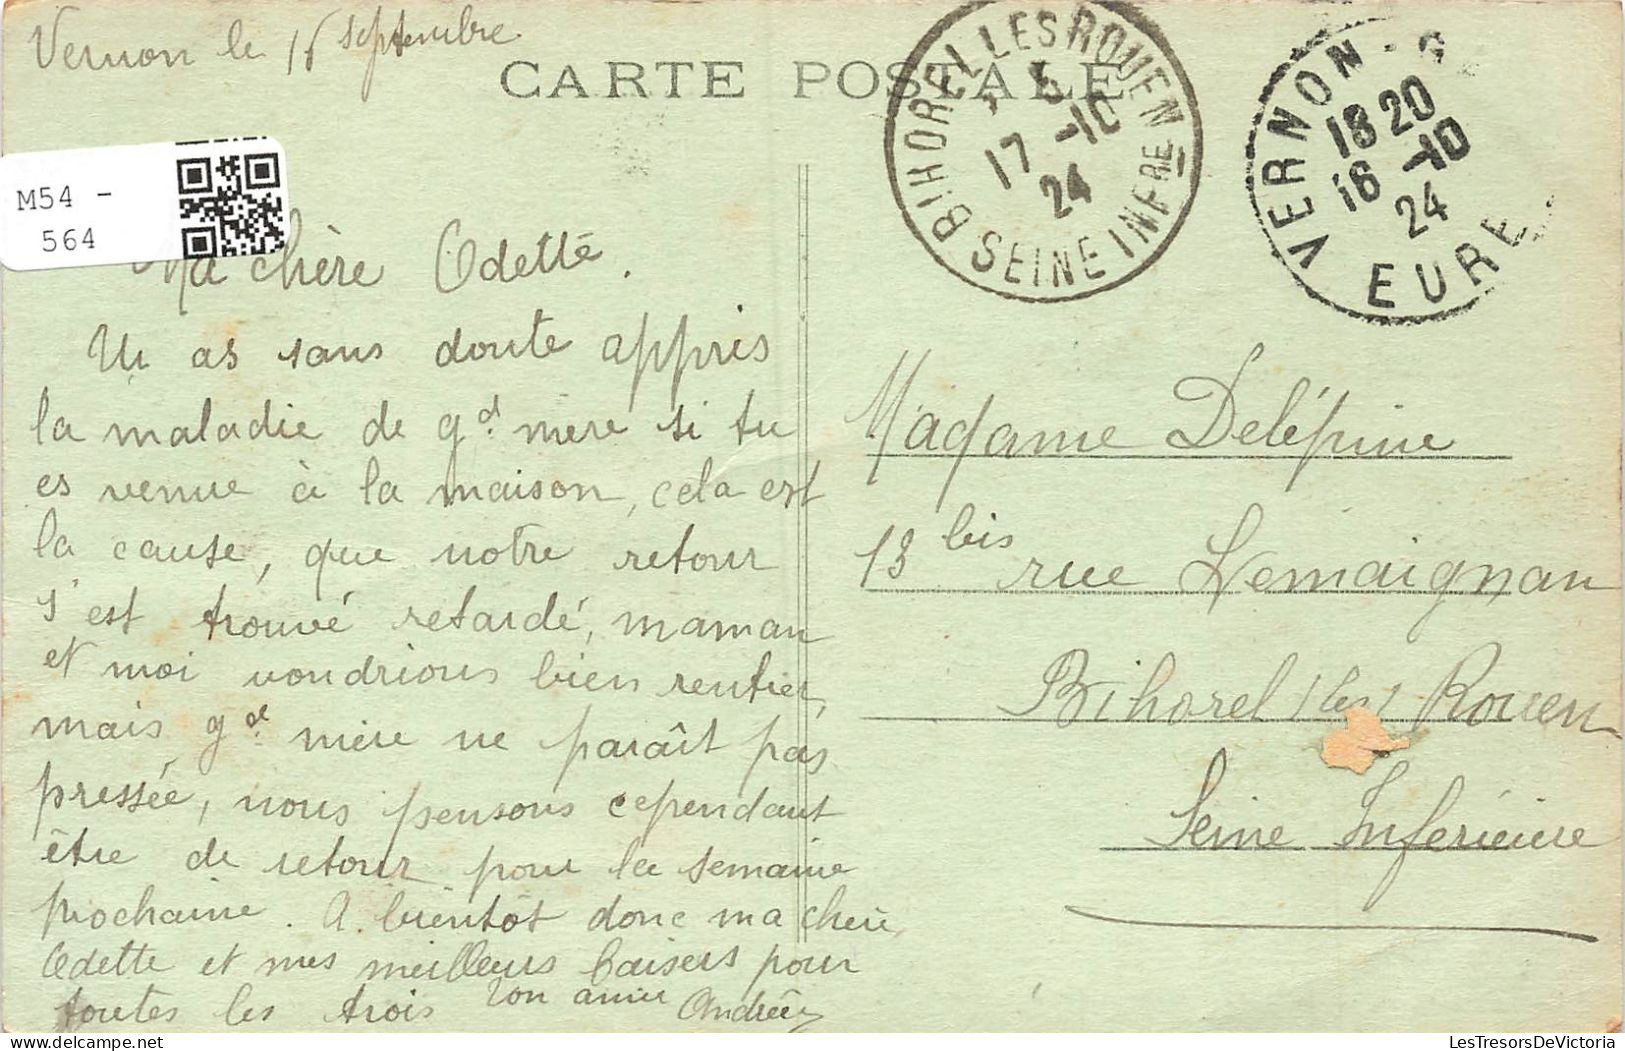 Vernon le 16 septembre
CARTE POSTALE
BIHOREL LES ROUEN
5
17 -10
24
SEINE INFRE
VERNON
18 20
16 -10
24
EURE
M54 -
564
Ma chère Odette.
Tu as sans doute appris
la maladie de gd. mère si tu
es venue à la maison, cela est
la cause, que notre retour
s'est trouvé retardé, maman
et moi voudrions bien rentrer,
mais gd. mère ne paraît pas
pressée, nous pensons cependant
être de retour pour la semaine
prochaine. A bientôt donc ma chère
Odette et mes meilleurs baisers pour
toutes les trois Ton amie Andrée
Madame Delépine
13 bis rue Lemaignan
Bihorel les Rouen
Seine Inférieure
LesTresorsDeVictoria